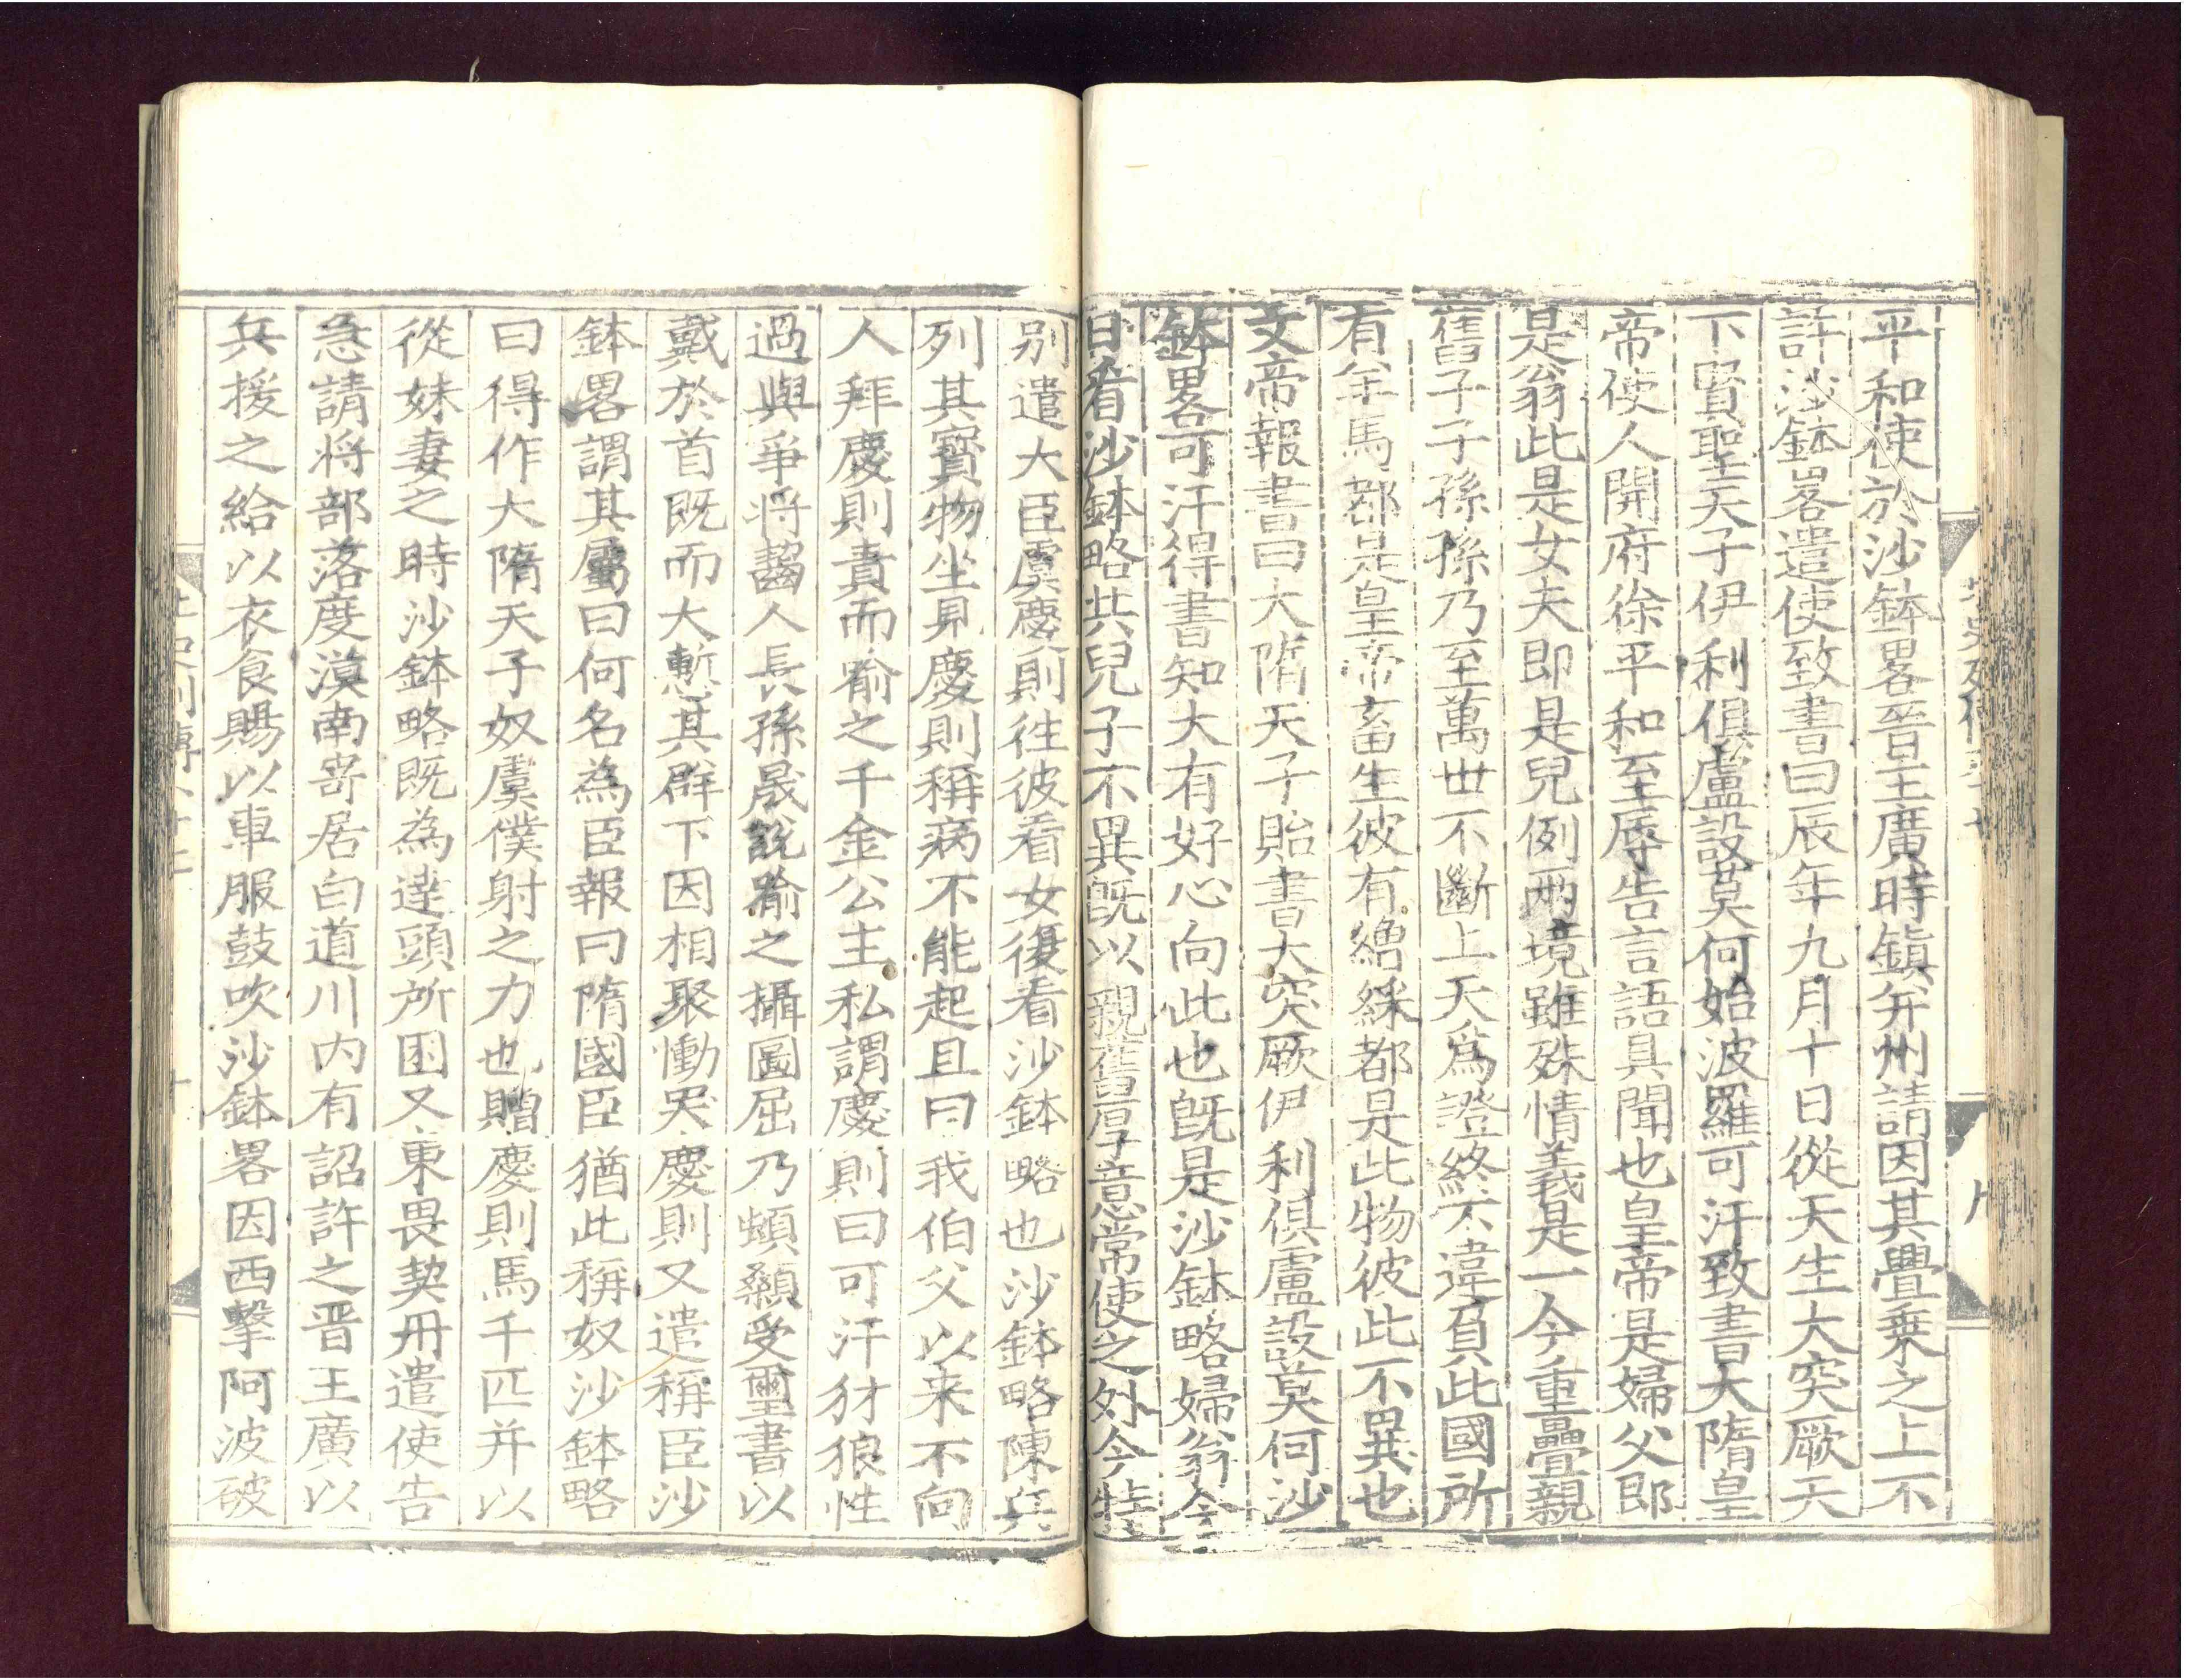 平和使於沙鉢畧晉王廣時鎮并州請因其釁乗之上不
許沙鉢畧遣使致書曰辰年九月十日從天生大突厥天
下賢聖天子伊利俱盧設莫何始波羅可汗致書大隋皇
帝使人開府徐平和至辱告言語具聞也皇帝是婦父即
是翁此是女夫即是兒例兩境雖殊情義是一今重疊親
舊子子孫孫乃至萬世不斷上天爲證終不違負此國所
有羊馬都是皇帝畜生彼有繒綵都是此物彼此不異也
文帝報書曰大隋天子貽書大突厥伊利俱盧設莫何沙
鉢畧可汗得書知大有好心向此也既是沙鉢略婦翁今
日看沙鉢略共兒子不異既以親舊厚意常使之外今特
别遣大臣虞慶則往彼看女復看沙鉢略也沙鉢略陳兵
列其寳物坐見慶則稱病不能起且曰我伯父以来不向
人拜慶則責而喻之千金公主私謂慶則曰可汗豺狼性
過與爭將齧人長孫晟說喻之攝圖屈乃頓顙受璽書以
戴於首既而大慙其群下因相聚慟哭慶則又遣稱臣沙
鉢畧謂其屬曰何名為臣報曰隋國臣猶此稱奴沙鉢略
曰得作大隋天子奴虞僕射之力也贈慶則馬千匹并以
從妹妻之時沙鉢略既為達頭所困又東畏契丹遣使告
急請將部落度漠南寄居白道川内有詔許之晋王廣以
兵援之給以衣食賜以車服鼓吹沙鉢畧因西擊阿波破